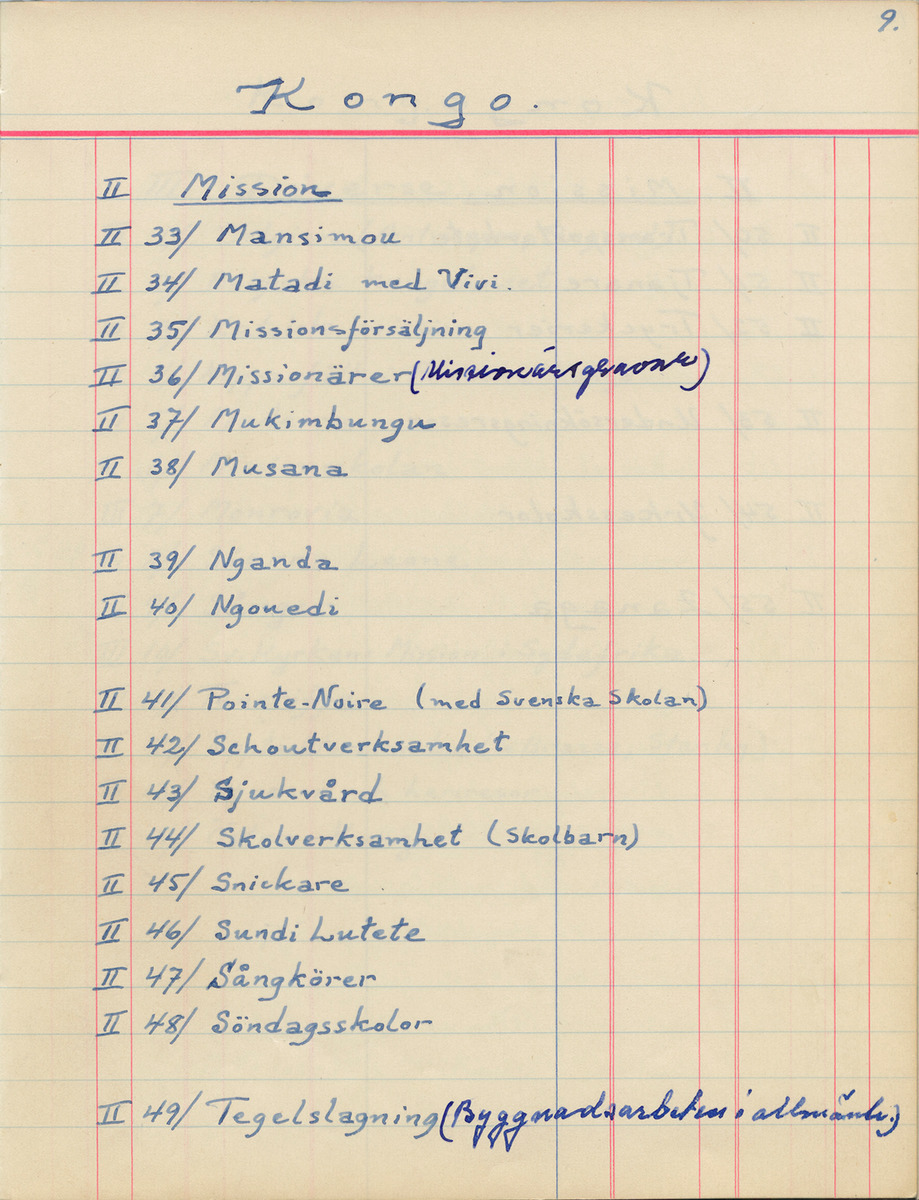 9.
Kongo.
II Mission
II 33/ Mansimou
II 34/ Matadi med Vivi.
II 35/ Missionsförsäljning
II 36/ Missionärer (Missionärsgravar)
II 37/ Mukimbungu
II 38/ Musana
II 39/ Nganda
II 40/ Ngouedi
II 41/ Pointe-Noire (med Svenska Skolan)
II 42/ Schoutverksamhet
II 43/ Sjukvård
II 44/ Skolverksamhet (Skolbarn)
II 45/ Snickare
II 46/ Sundi Lutete
II 47/ Sångkörer
II 48/ Söndagsskolor
II 49/ Tegelslagning (Byggnadsarbeten i allmänh.)